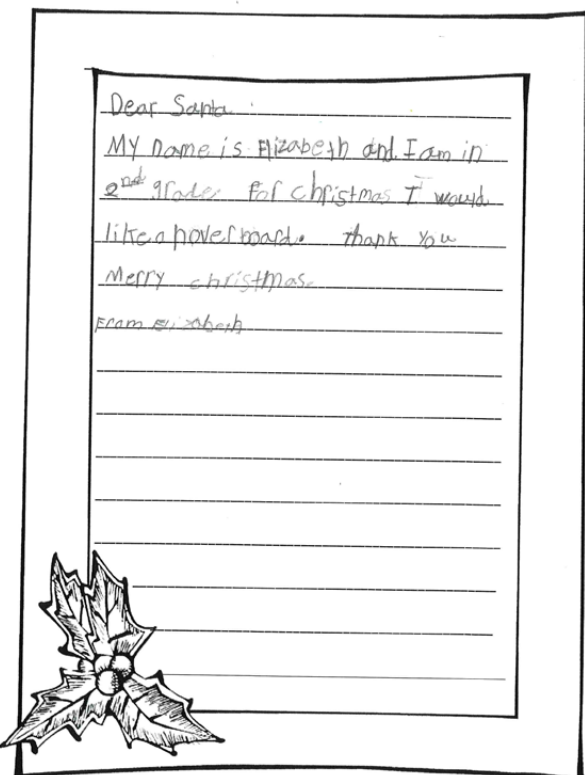 Dear Santa
My name is Elizabeth and I am in
2nd grade. For christmas I would
like a hoverboard. thank you
Merry christmas.
From Elizabeth